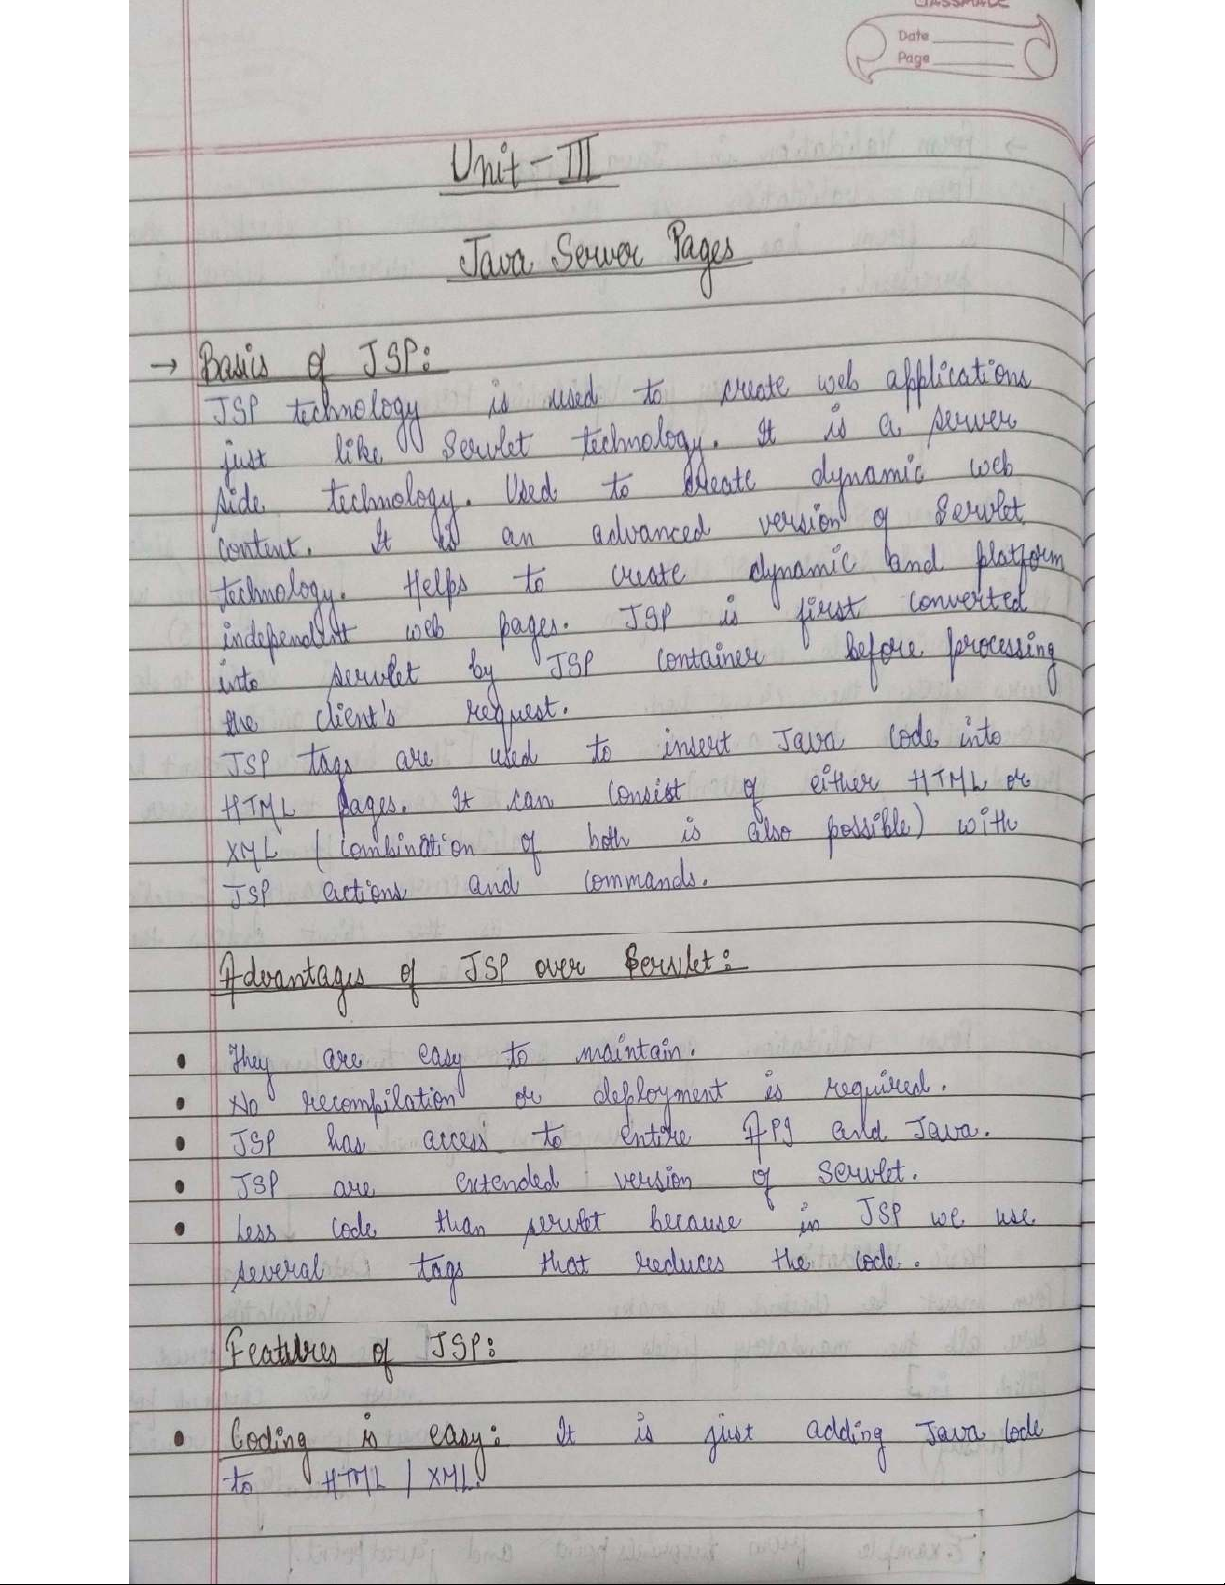 CLASSMATE
Date
Page
Unit - III
Java Server Pages
→ Basics of JSP:
JSP technology is used to create web applications
just like Servlet technology. It is a server
side technology. Used to create dynamic web
content. It is an advanced version of Servlet
technology. Helps to create dynamic and platform
independent web pages. JSP is first converted
into servlet by JSP container before processing
the client's request.
JSP tags are used to insert Java code into
HTML pages. It can consist of either HTML or
XML (combination of both is also possible) with
JSP actions and commands.
Advantages of JSP over Servlet:
• They are easy to maintain.
• No recompilation or deployment is required.
• JSP has access to entire API and Java.
• JSP are extended version of Servlet.
• Less code than servlet because in JSP we use
several tags that reduces the code.
Features of JSP:
• Coding is easy: It is just adding Java code
to HTML / XML.